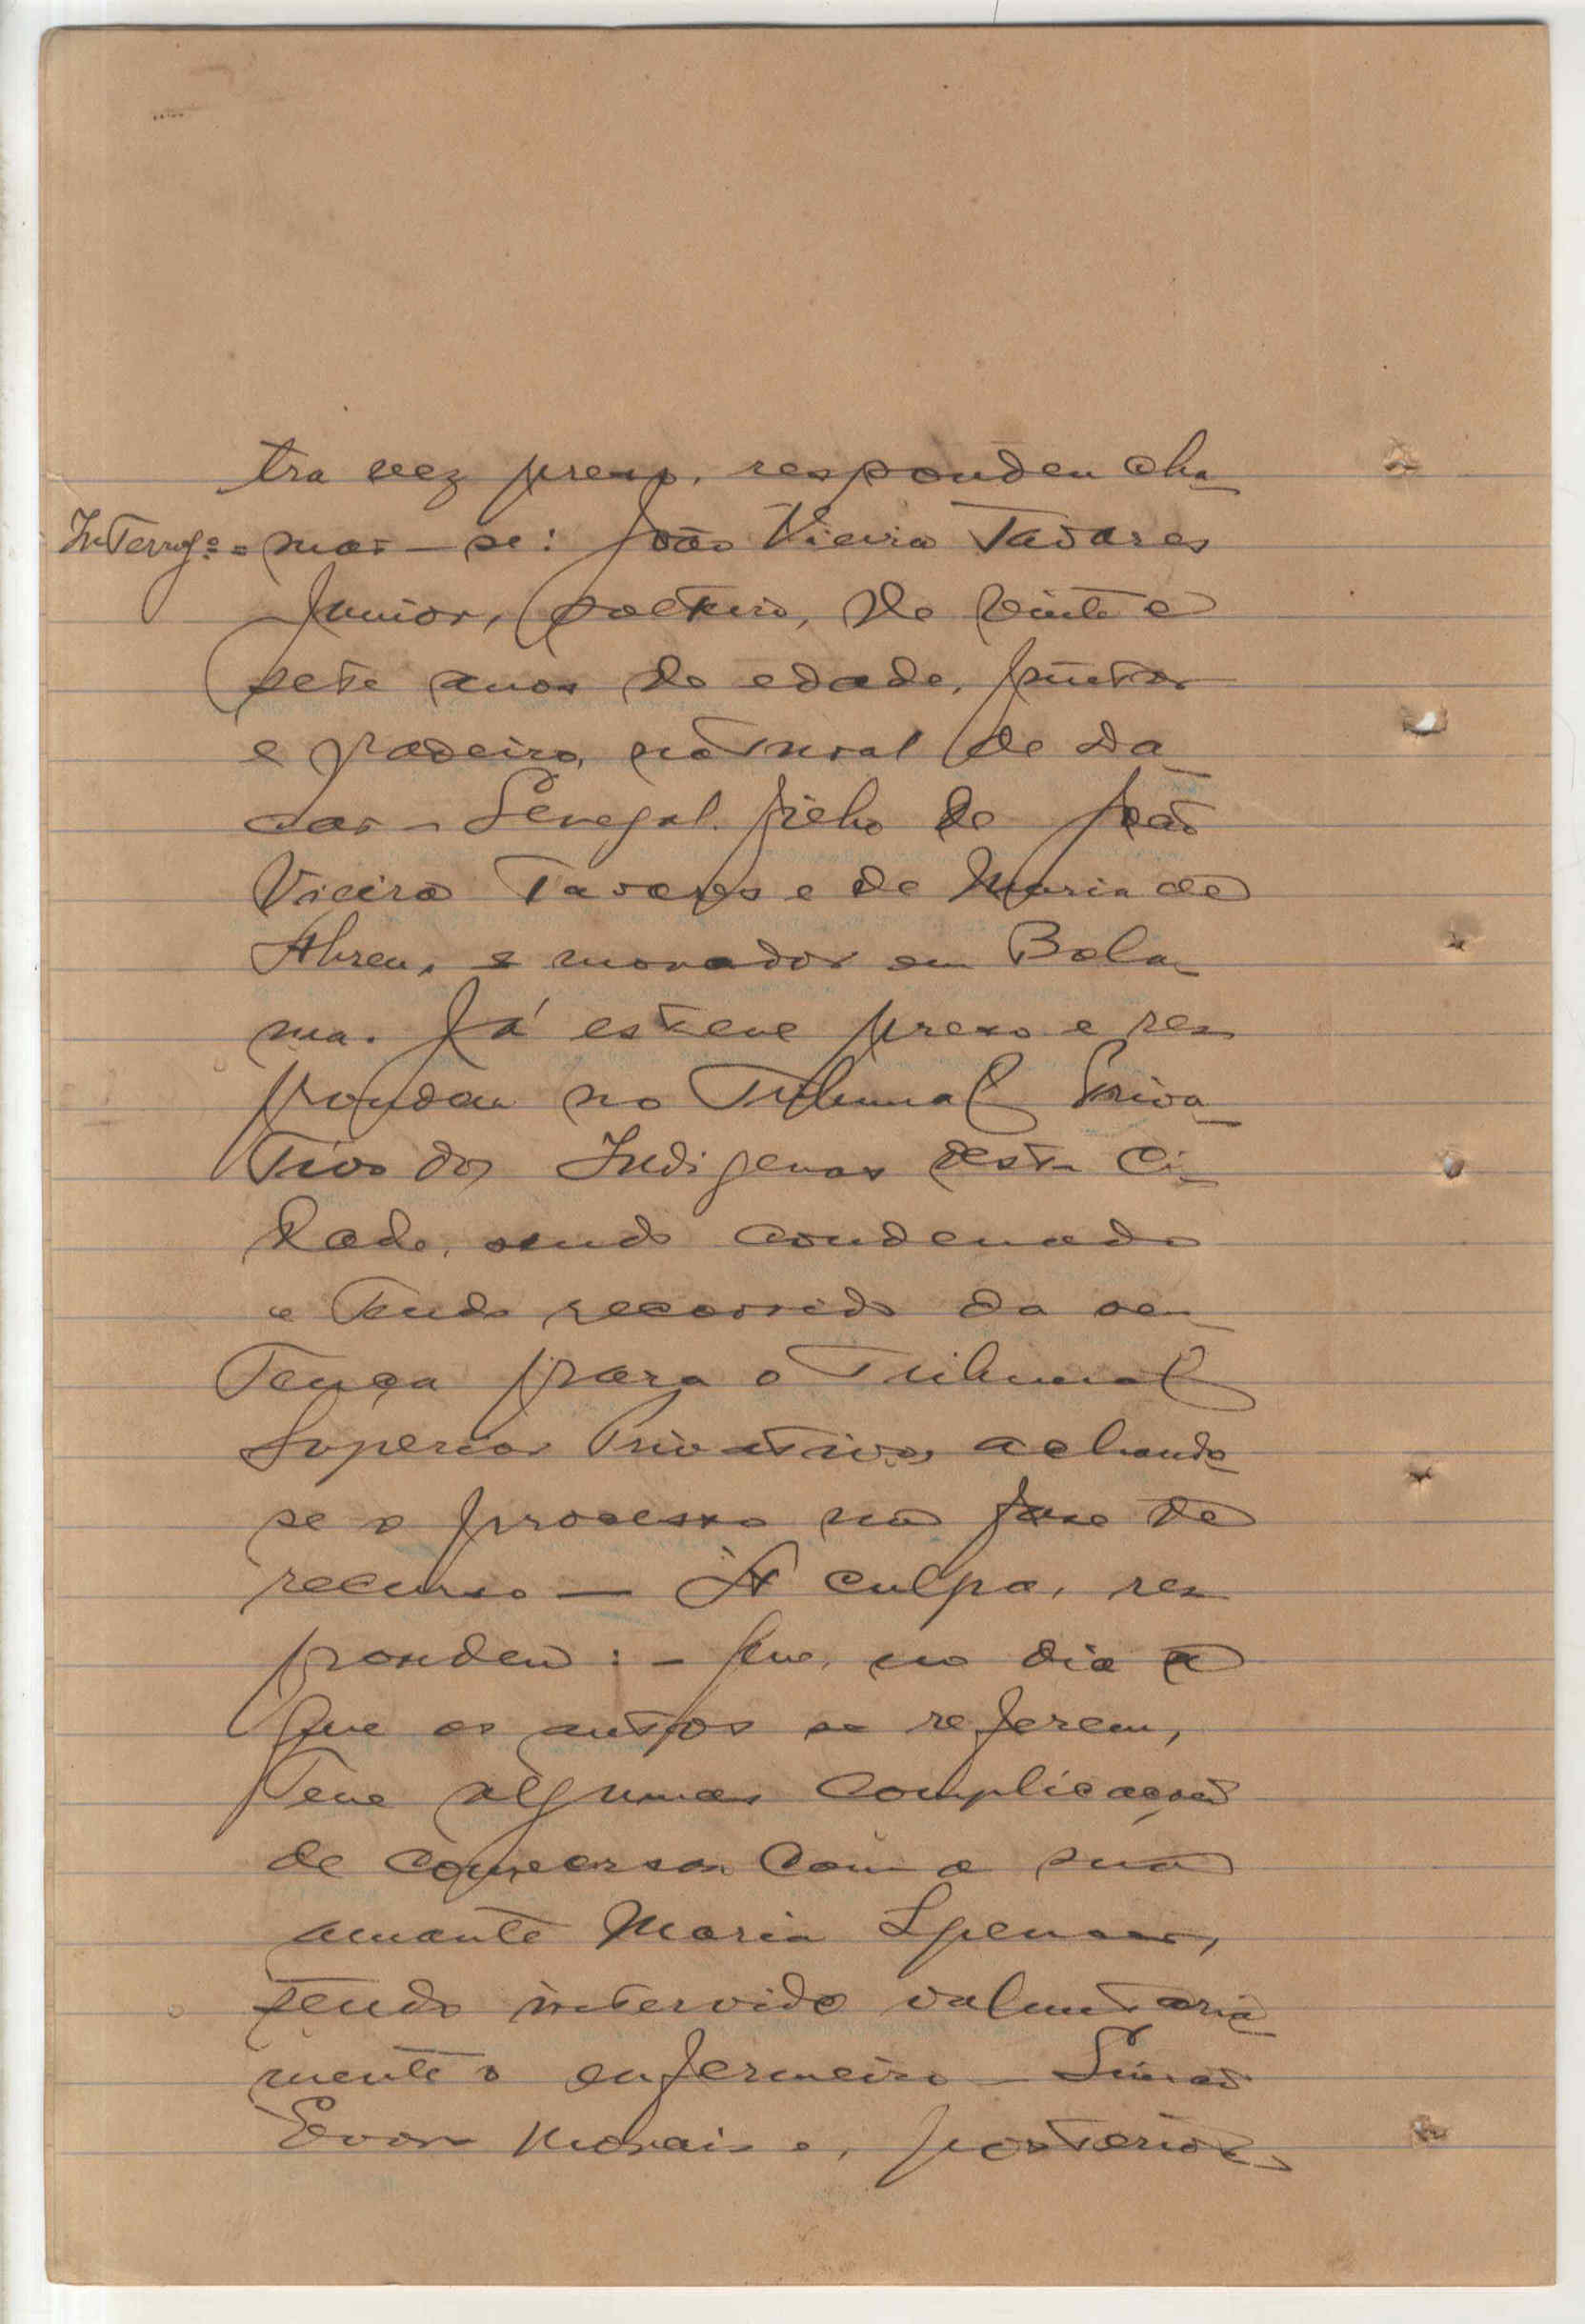 tra vez preso, respondeu cha-
Interrogº= mar-se: João Vieira Tavares
Junior, solteiro, de vinte e
sete anos de edade, pintor
e padeiro, natural de Da-
car - Senegal. filho de João
Vieira Tavares e de Maria de
Abreu, e morador em Bola-
ma. Já esteve preso e res-
pondeu no Tribunal Priva-
tivo dos Indigenas desta Ci-
dade, sendo condenado
e tendo recorrido da sen-
tença para o Tribunal
Superior Privativo, achando-
se o processo na fase de
recurso — Á culpa, res-
pondeu: - Que, no dia a
que os autos se referem,
teve algumas complicações
de conversas com a sua
amante Maria
tendo intervido voluntaria-
mente o enfermeiro - Simão
Morais e, posterior-